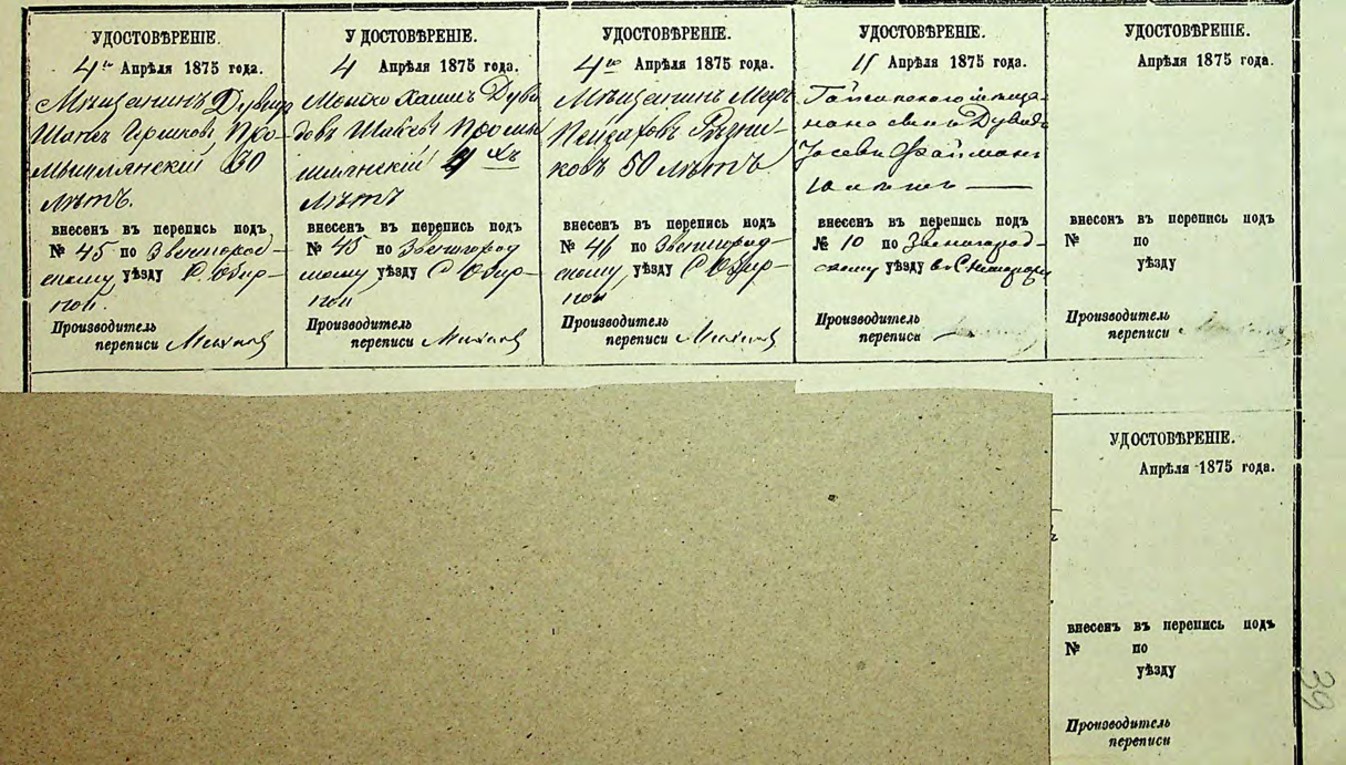 УДОСТОВѢРЕНІЕ.
4го Апрѣля 1875 года.
Мѣщанинъ Дувид
Шапсъ Гершковъ Про-
мышлянскій 30
лѣтъ.
внесенъ въ перепись подъ
№ 45 по Звенигород-
скому уѣзду С. Обир-
ной.
Производитель
переписи
УДОСТОВѢРЕНІЕ.
4 Апрѣля 1875 года.
Мошко Хаимъ Дуви
довъ
4хъ
лѣтъ
внесенъ въ перепись подъ
№ 45 по Звенигород
скому уѣзду С Обир-
ной
Производитель
переписи
УДОСТОВѢРЕНІЕ.
4го Апрѣля 1875 года.
Мѣщанинъ
Пейсаховъ Резни-
ковъ 50 лѣтъ
внесенъ въ перепись подъ
№ 46 по Звенигород-
скому уѣзду С Обир-
ной
Производитель
переписи
УДОСТОВѢРЕНІЕ.
11 Апрѣля 1875 года.
Гайсинского мѣща-
нина сынъ Дувидъ
Файманъ
10
внесенъ въ перепись подъ
№ 10 по Звенигород-
скому уѣзду въ С
Производитель
переписи
УДОСТОВѢРЕНІЕ.
Апрѣля 1875 года.
внесенъ въ перепись подъ
№ по
уѣзду
Производитель
переписи
УДОСТОВѢРЕНІЕ.
Апрѣля 1875 года.
внесенъ въ перепись подъ
№ по
уѣзду
Производитель
переписи
39